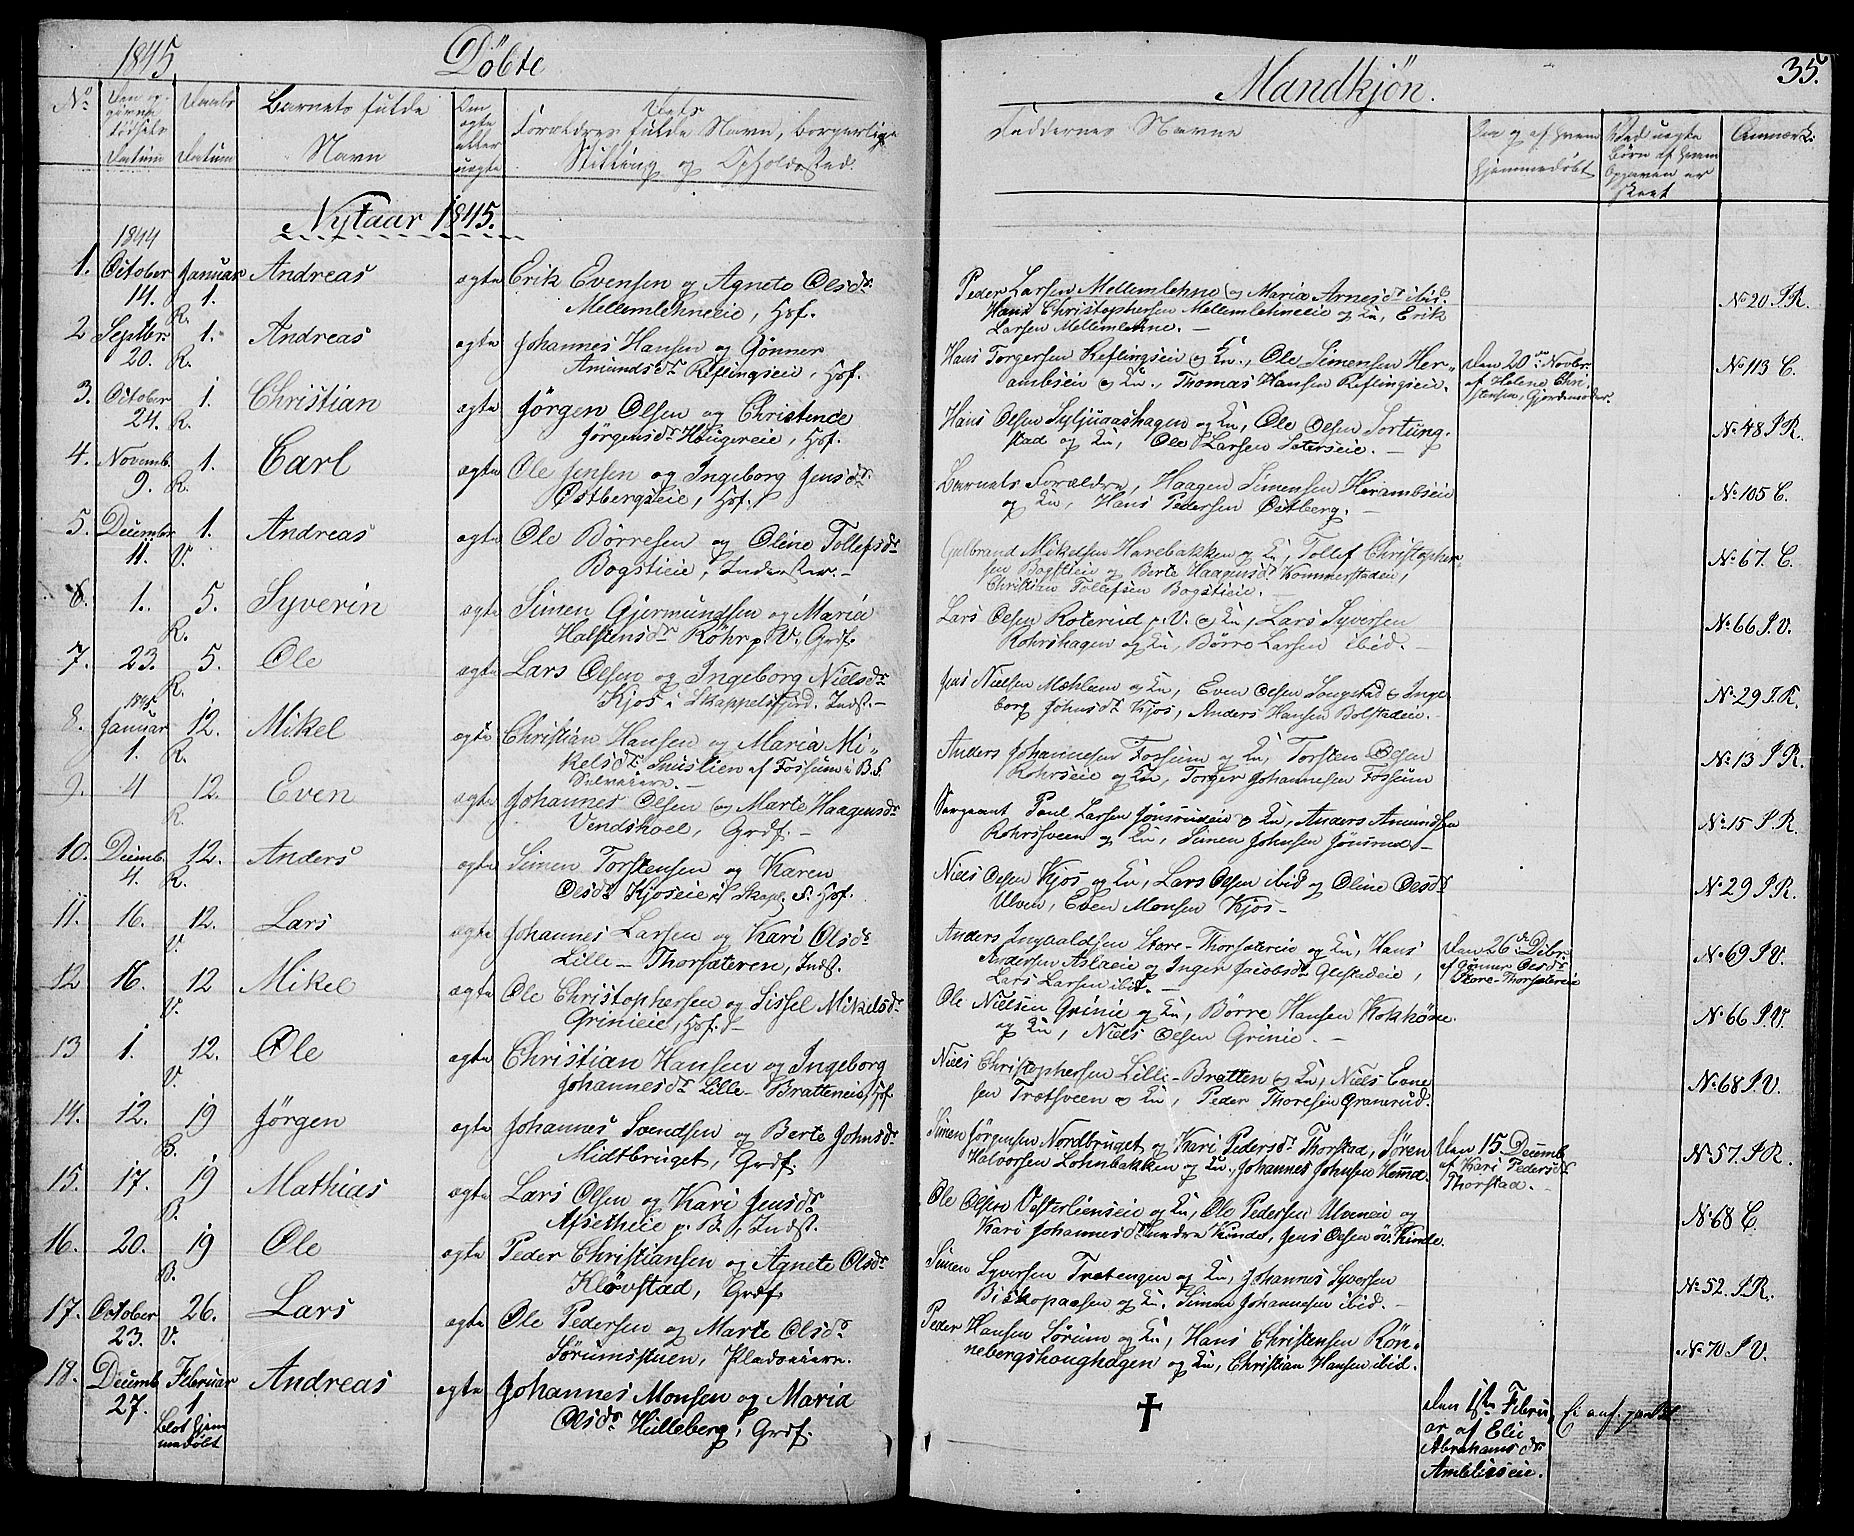 1845. Döbte
Mandkjön. 35.
No. Barnets fulde Navn
Datum Datum
Om ægte eller uægte
Forældres fulde Navn, borgerlige Stilling og Opholdssted.
Faddernes Navne
hjemmedøbt
Anmærk:
Nytaar 1845.
1844
1. October 14. Januar 1. R. Andreas ægte Erik Evensen og Agnete Olsdr
Mellemlehneeie, Hof.
Peder Larsen Mellemlehne og Maria Arnesdr ibid.
Hans Christophersen Mellemlehneeie og Ku, Erik
Larsen Mellemlehne. —
No 20 P.R.
2 Septbr. 20. 1. R. Andreas ægte Johannes Hansen og Gönner
Amundsdr Reflingseie, Hof.
Hans Torgersen Reflingseie og Ku., Ole Simensen Her-
ambseie og Ku., Thomas Hansen Reflingseie.
Den 20de Novbr.
af Helene Chri-
stensen, Gjordemoder.
No 113 C.
3. October 24. 1. R. Christian ægte Jörgen Olsen og Christence
Jörgensdr Hougereie, Hof.
Hans Olsen og Ku, Ole Olsen Sortung-
stad og Ku, Ole Larsen Sæterseie. —
No 48 P.R.
4. Novemb. 9. 1. R. Carl ægte Ole Jensen og Ingeborg Jensdr
Östbergseie, Hof.
Barnets Forældre, Haagen Simensen Herambseie
og Ku, Hans Pedersen Östberg. —
No 105 C.
5. Decembr. 11. 1. V. Andreas ægte Ole Börresen og Oline Tollefsdr
Bogstieie, Inderster. —
Gulbrand Mikelsen Harebakken og Ku, Tollef Christopher-
sen Bogstieie og Berte Haagensdr Kommerstadeie,
Christian Tollefsen Bogstieie. —
No 67 C.
6. 1. 5. R. Syverin ægte Simen Gjermundsen og Maria
Halstensdr Röhr p. V. Grdf.
Lars Olsen Roterud p. V. og Ku, Lars Syversen
Rohrshagen og Ku, Börre Larsen ibid. —
No 66 P.V.
7. 23. 5. R. Ole ægte Lars Olsen og Ingeborg Nielsdr
Kjos i Skappelsfjerd. Indst. —
Jens Nielsen Mæhlum og Ku, Even Olsen Songstad og Inge-
borg Johnsdr Kjos, Anders Hansen Bolstadeie. —
No 29 P.R.
1845
8. Januar 1. 12. R. Mikel ægte Christian Hansen og Maria Mi-
kelsdr Snuslien af Fossum i B.F.
Selveiere. —
Anders Johannesen Fossum og Ku, Torsten Olsen
Rohrseie og Ku, Torger Johannesen Fossum
No 13 P.R.
9. 4 12. R. Even ægte Johannes Olsen og Marte Haagensdr
Vendskoel, Grdf. —
Sergeant Poul Larsen Jönsrudeie og Ku, Anders Amundsen
Rohrsveen og Ku, Simen Johnsen Jönsrud —
No 15 P.R.
10. Decemb. 4. 12. R. Anders ægte Simen Torstensen og Karen
Olsdr Kjoseie i Skapl. F. Hof.
Niels Olsen Kjos og Ku, Lars Olsen ibid og Oline Olsdr
Ulven, Even Monsen Kjos —
No 29 P.R.
11. 16. 12. V. Lars ægte Johannes Larsen og Kari Olsdr
Lille-Thorsæteren, Indst.
Anders Ingvaldsen Store-Thorsætereie og Ku, Hans
Andersen Aslaeie og Inger Jacobsdr Glestadeie,
Lars Larsen ibid. —
Den 26de Dcbr.
af Gönner Olsdr
Store-Thorsætereie
No 69 P.V.
12 16. 12 V. Mikel ægte Ole Christophersen og Sissel Mikelsdr
Grinieie, Hof. —
Ole Nielsen Grinie og Ku, Börre Hansen
og Ku, Niels Olsen Grinie. —
No 66 P.V.
13 1. 12. V. Ole ægte Christian Hansen og Ingeborg
Johannesdr Lille-Bratteneie, Hof.
Niels Christophersen Lille-Bratten og Ku, Niels Evne-
sen Trætsveen og Ku, Peder Thoresen Granerud.
No 68 P.V.
14. 12. 19 B. Jörgen ægte Johannes Svendsen og Berte Johnsdr
Midtbruget, Grdf.
Simen Jörgensen Nordbruget og Kari Pedersdr Thorstad, Sören
Halvorsen Lohnbakken og Ku, Johannes Johnsen Hemna.
Den 15. Decemb.
af Kari Pedersdr
Thorstad. —
No 57. P.R.
15. 17. 19 B. Mathias ægte Lars Olsen og Kari Jensdr
Afsetheie p. B., Indst.
Ole Olsen Vesterlienseie og Ku, Ole Pedersen Ulveneie og
Kari Johannesdr Kindet, Jens Olsen öv. Kinde.
No 68 C.
16. 20. 19 B. Ole ægte Peder Christiansen og Agnete Olsdr
Klövstad, Grdf.
Simen Syversen Trætengen og Ku, Johannes Syversen
Biskopaasen og Ku, Simen Johannesen ibid. —
No 52. P.R.
17. October 23. 26. V. Lars ægte Ole Pedersen og Marte Olsdr
Sörumsstuen, Pladseiere.
Peder Hansen Sörum og Ku, Hans Christensen Rön-
nebergshoughagen og Ku, Christian Hansen ibid.
No 70 P.V.
18. Decemb. 27. Februar 1 Andreas ægte Johannes Monsen og Maria
Blot Hjem
medöbt
Olsdr Hulleberg, Grdf.
✝
Den 1ste Febru-
ar af Elie
Abrahamsdr
Amblieseie.